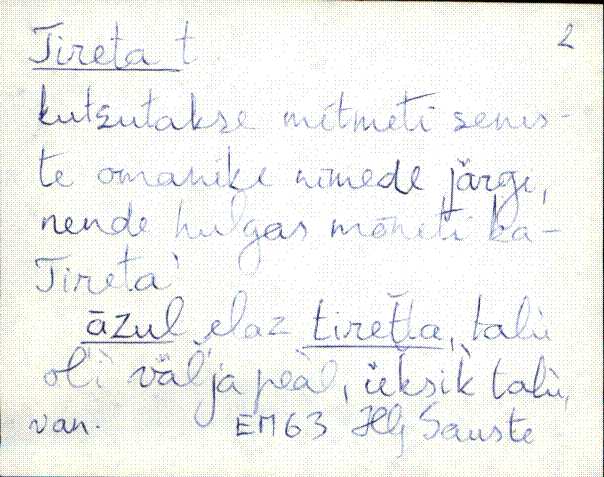 Tireta t 2
kutsutakse mitmeti senis-
te omanike nimede järgi,
nende hulgas mõneti ka-
Tireta'
āzul elaz tiret̆ta, talù
ol'i väl'ja peal, üksik talù,
van. EM63 Hlj Sauste